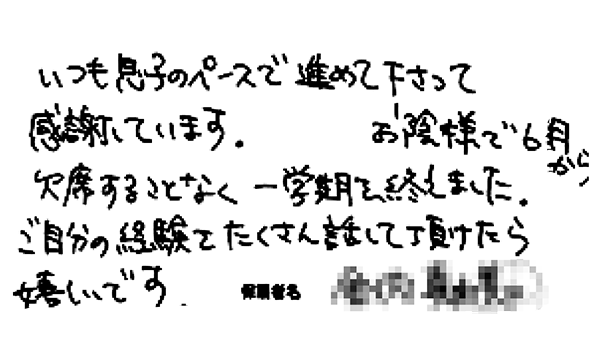 いつも息子のペースで進めて下さって
感謝しています。 お陰様で6月から
欠席することなく一学期を終えました。
ご自分の経験をたくさん話して頂けたら
嬉しいです。 保護者名